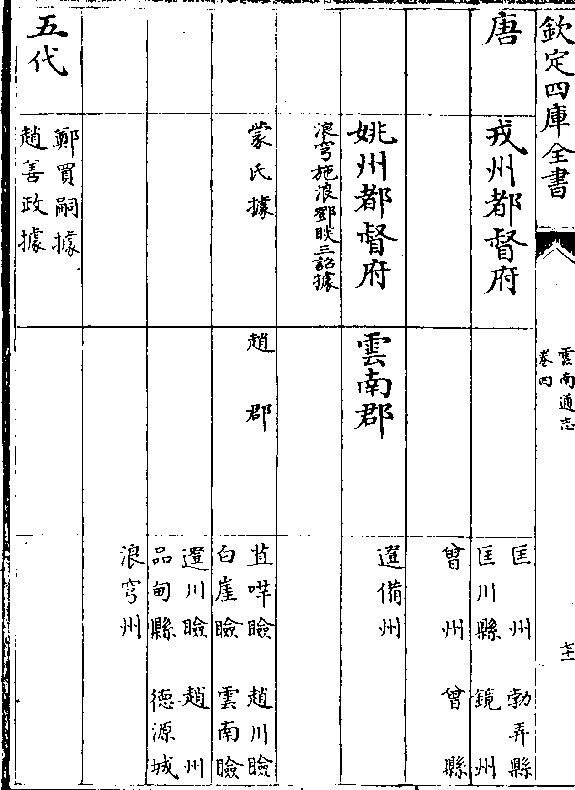 欽定四庫全書
雲南通志
卷四
唐 戎州都督府 匡州 勃弄縣
匡川縣 鏡州
曾州 曾縣
姚州都督府 雲南郡 邆備州
浪穹施浪鄧睒三詔據
蒙氏據 趙郡 苴咩瞼 趙川瞼
白崖瞼 雲南瞼
邆川瞼 趙州
品甸縣 德源城
浪穹州
五代 鄭買嗣據
趙善政據